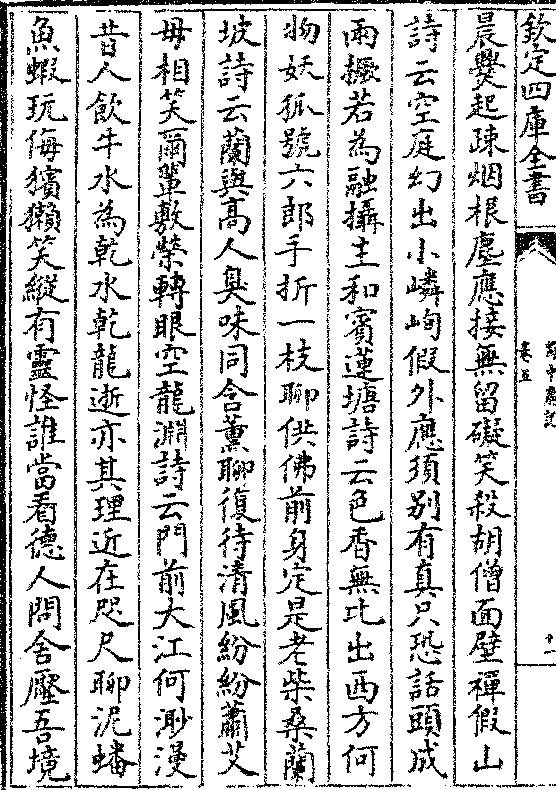 欽定四庫全書
蜀中廣記
卷五
十一
晨爨起疎烟根塵應接無留礙笑殺胡僧面壁禪假山
詩云空庭幻出小嶙峋假外應須別有真只恐話頭成
兩橛若為融攝主和賓蓮塘詩云色香無比出西方何
物妖狐號六郎手折一枝聊供佛前身定是老柴桑蘭
坡詩云蘭與高人臭味同含薰聊復待清風紛紛蕭艾
毋相笑爾輩敷榮轉眼空龍淵詩云門前大江何渺漫
昔人飲牛水為乾水乾龍逝亦其理近在咫尺聊泥蟠
魚蝦玩侮獱獺笑縱有靈怪誰當看德人問舍壓吾境